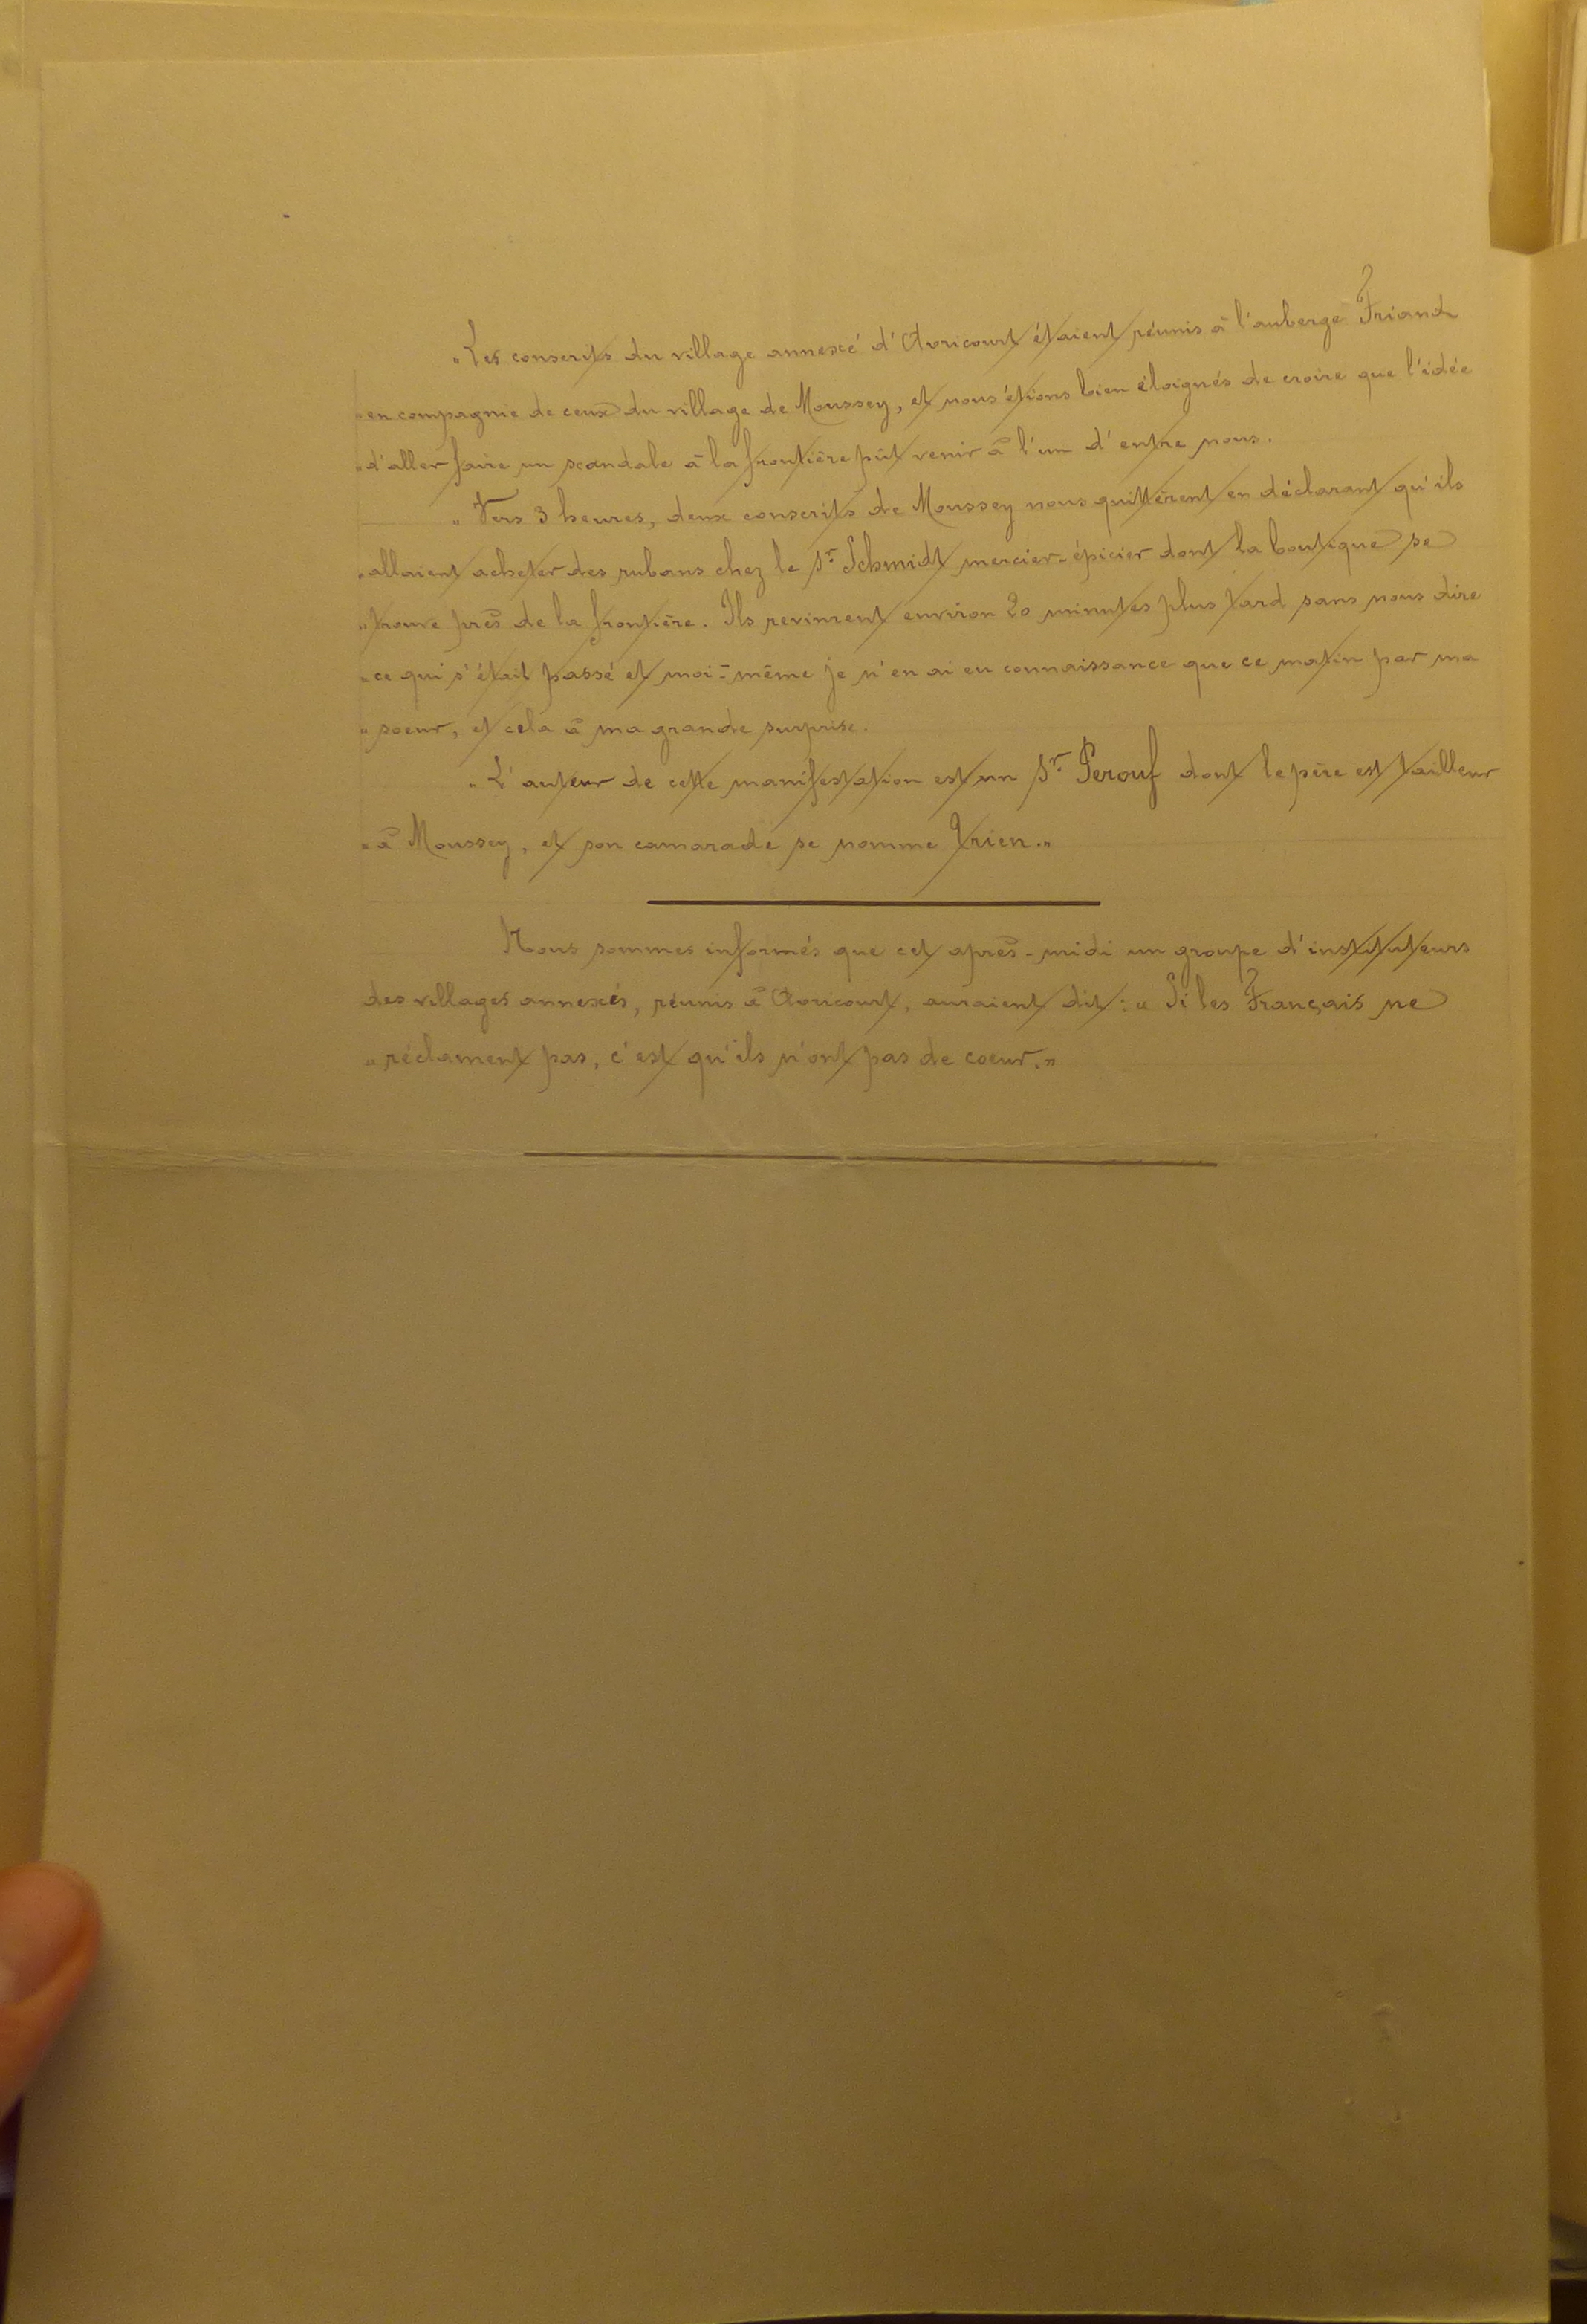 „Les conscrits du village annexé d'Avricourt étaient réunis à l'auberge Friand
„en compagnie de ceux du village de Moussey, et nous étions bien éloignés de croire que l'idée
„d'aller faire un scandale à la frontière pût venir à l'un d'entre nous.
„Vers 3 heures, deux conscrits de Moussey nous quittèrent en déclarant qu'ils
„allaient acheter des rubans chez le Sr Schmidt mercier-épicier dont la boutique se
„trouve près de la frontière. Ils revinrent environ 20 minutes plus tard sans nous dire
„ce qui s'était passé et moi-même je n'en ai eu connaissance que ce matin par ma
„soeur, et cela à ma grande surprise.
„L'auteur de cette manifestation est un Sr Perouf dont le père est tailleur
„à Moussey, et son camarade se nomme „
Nous sommes informés que cet après-midi un groupe d'instituteurs
des villages annexés, réunis à Avricourt, auraient dit : „Si les Français ne
„réclament pas, c'est qu'ils n'ont pas de coeur.„